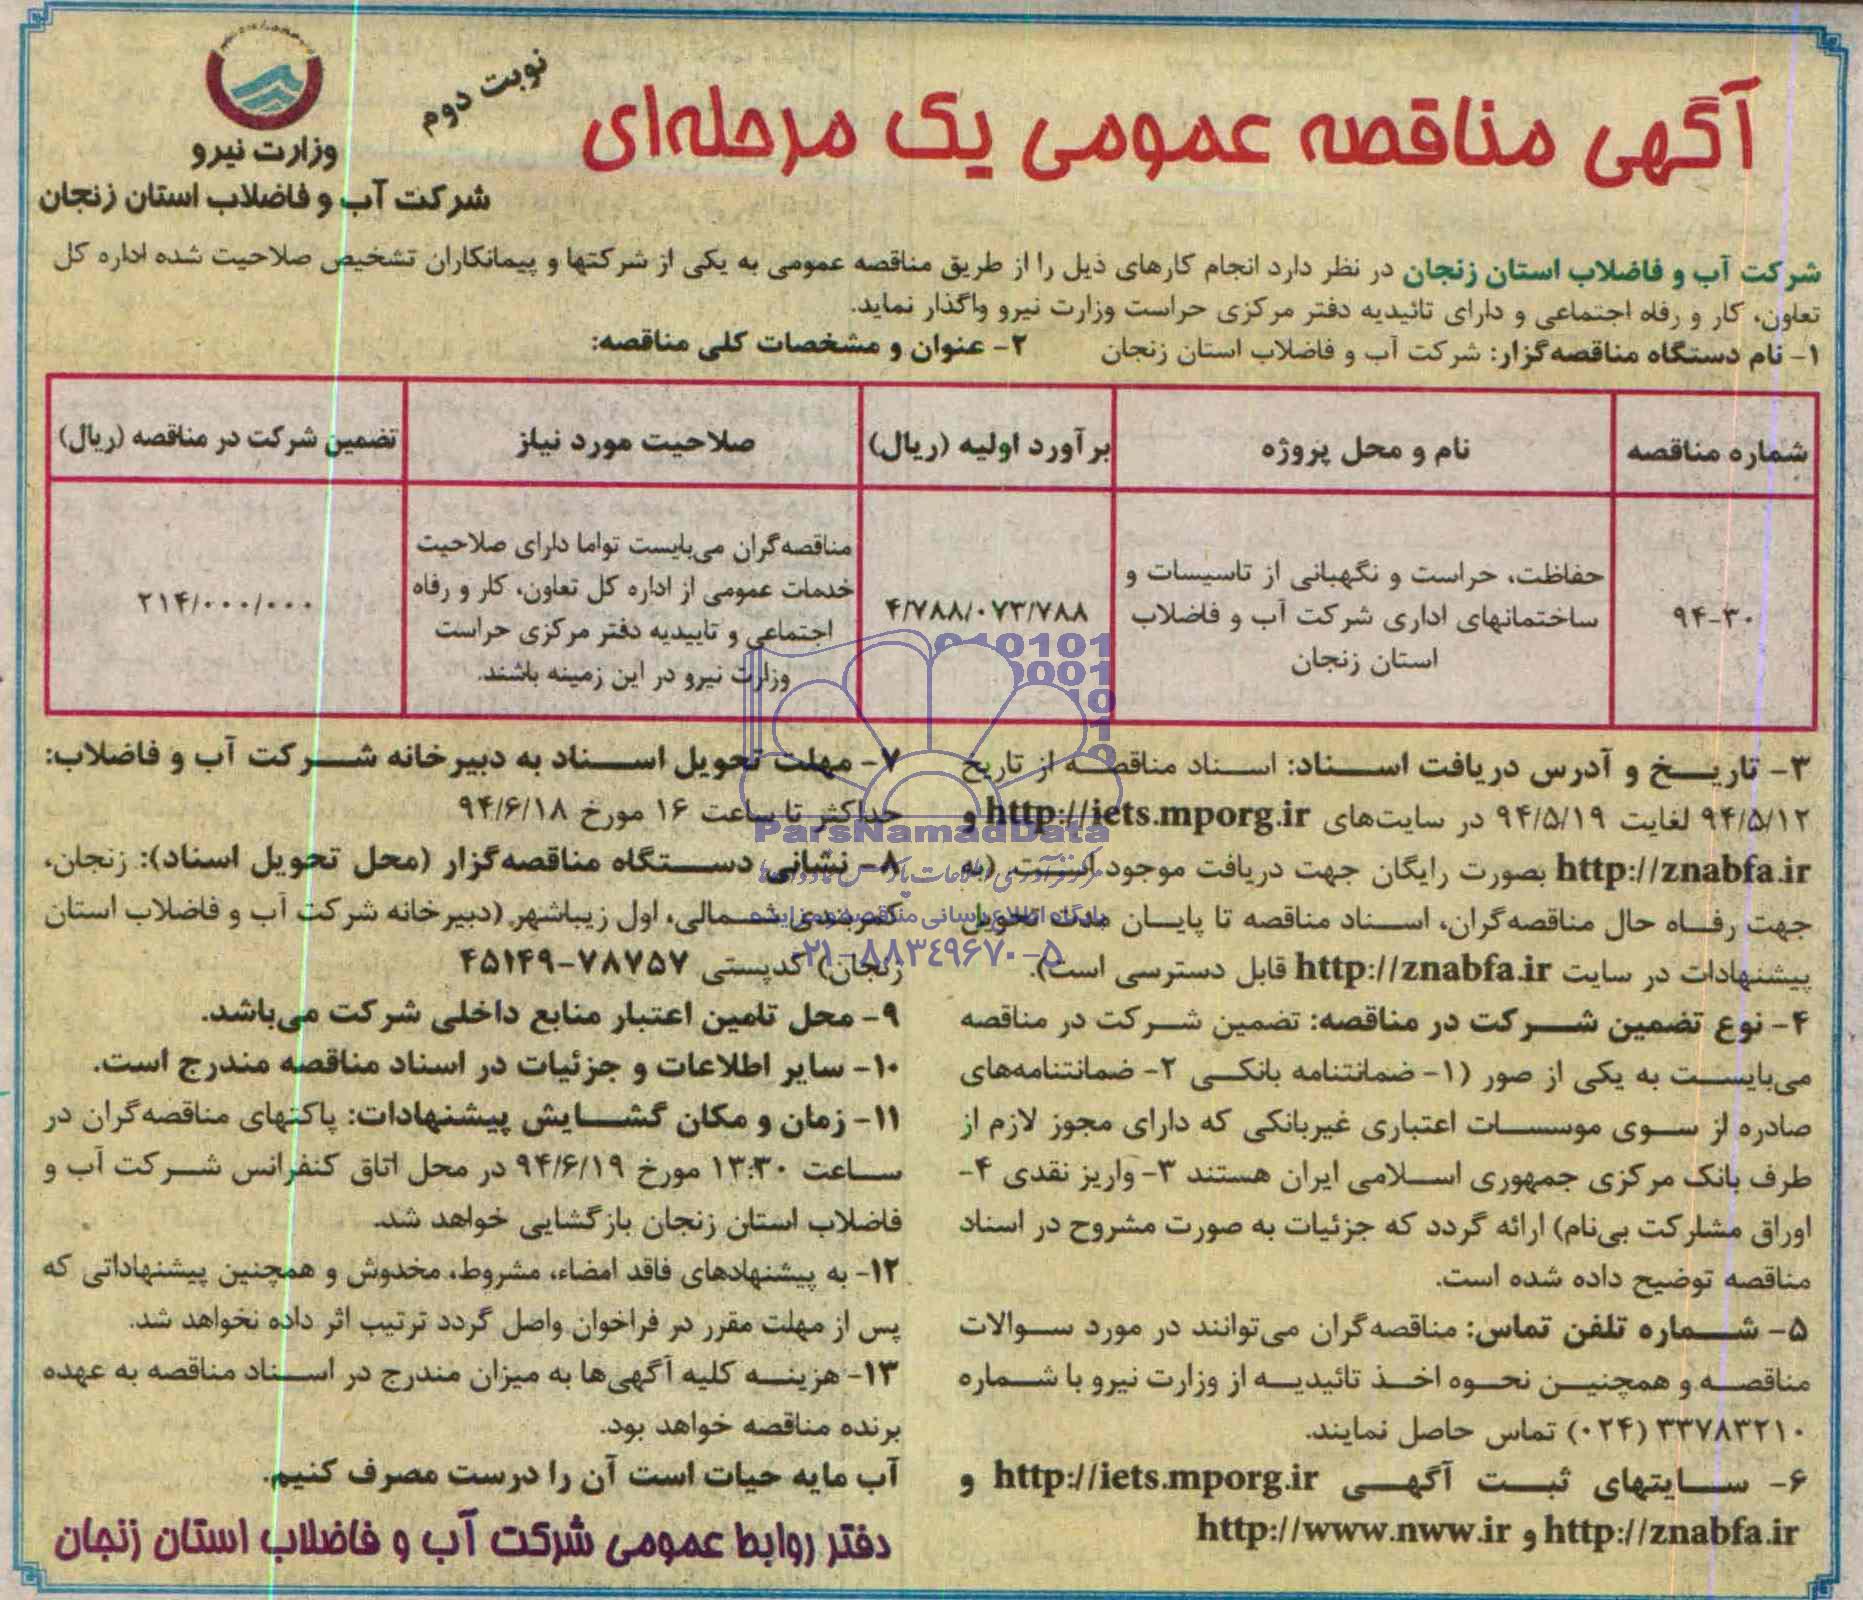 آگهی مناقصه عمومی یک مرحله‌ای
نوبت دوم
وزارت نیرو
شرکت آب و فاضلاب استان زنجان
شرکت آب و فاضلاب استان زنجان در نظر دارد انجام کارهای ذیل را از طریق مناقصه عمومی به یکی از شرکتها و پیمانکاران تشخیص صلاحیت شده اداره کل
تعاون، کار و رفاه اجتماعی و دارای تائیدیه دفتر مرکزی حراست وزارت نیرو واگذار نماید.
۱- نام دستگاه مناقصه‌گزار: شرکت آب و فاضلاب استان زنجان ۲- عنوان و مشخصات کلی مناقصه:
شماره مناقصه نام و محل پروژه برآورد اولیه (ریال) صلاحیت مورد نیاز تضمین شرکت در مناقصه (ریال)
۹۴-۳۰
حفاظت، حراست و نگهبانی از تاسیسات و
ساختمانهای اداری شرکت آب و فاضلاب
استان زنجان
۴/۷۸۸/۰۷۳/۷۸۸
مناقصه‌گران می‌بایست تواما دارای صلاحیت
خدمات عمومی از اداره کل تعاون، کار و رفاه
اجتماعی و تاییدیه دفتر مرکزی حراست
وزارت نیرو در این زمینه باشند.
۲۱۴/۰۰۰/۰۰۰
۳- تاریخ و آدرس دریافت اسناد: اسناد مناقصه از تاریخ
۹۴/۵/۱۲ لغایت ۹۴/۵/۱۹ در سایت‌های http://iets.mporg.ir و
http://znabfa.ir بصورت رایگان جهت دریافت موجود است. (به
جهت رفاه حال مناقصه‌گران، اسناد مناقصه تا پایان مدت تحویل
پیشنهادات در سایت http://znabfa.ir قابل دسترسی است).
۴- نوع تضمین شرکت در مناقصه: تضمین شرکت در مناقصه
می‌بایست به یکی از صور (۱- ضمانتنامه بانکی ۲- ضمانتنامه‌های
صادره از سوی موسسات اعتباری غیربانکی که دارای مجوز لازم از
طرف بانک مرکزی جمهوری اسلامی ایران هستند ۳- واریز نقدی ۴-
اوراق مشارکت بی‌نام) ارائه گردد که جزئیات به صورت مشروح در اسناد
مناقصه توضیح داده شده است.
۵- شماره تلفن تماس: مناقصه‌گران می‌توانند در مورد سوالات
مناقصه و همچنین نحوه اخذ تائیدیه از وزارت نیرو با شماره
۳۳۷۸۳۲۱۰ (۰۲۴) تماس حاصل نمایند.
۶- سایتهای ثبت آگهی http://iets.mporg.ir و
http://znabfa.ir و http://www.nww.ir
۷- مهلت تحویل اسناد به دبیرخانه شرکت آب و فاضلاب:
حداکثر تا ساعت ۱۶ مورخ ۹۴/۶/۱۸
۸- نشانی دستگاه مناقصه‌گزار (محل تحویل اسناد): زنجان،
کمربندی شمالی، اول زیباشهر (دبیرخانه شرکت آب و فاضلاب استان
زنجان) کدپستی ۷۸۷۵۷-۴۵۱۴۹
۹- محل تامین اعتبار منابع داخلی شرکت می‌باشد.
۱۰- سایر اطلاعات و جزئیات در اسناد مناقصه مندرج است.
۱۱- زمان و مکان گشایش پیشنهادات: پاکتهای مناقصه‌گران در
ساعت ۱۳:۳۰ مورخ ۹۴/۶/۱۹ در محل اتاق کنفرانس شرکت آب و
فاضلاب استان زنجان بازگشایی خواهد شد.
۱۲- به پیشنهادهای فاقد امضاء، مشروط، مخدوش و همچنین پیشنهاداتی که
پس از مهلت مقرر در فراخوان واصل گردد ترتیب اثر داده نخواهد شد.
۱۳- هزینه کلیه آگهی‌ها به میزان مندرج در اسناد مناقصه به عهده
برنده مناقصه خواهد بود.
آب مایه حیات است آن را درست مصرف کنیم.
دفتر روابط عمومی شرکت آب و فاضلاب استان زنجان
ParsNamadData
پایگاه اطلاع رسانی مناقصه و مزایده
۰۲۱-۸۸۳۴۹۶۷۰-۵